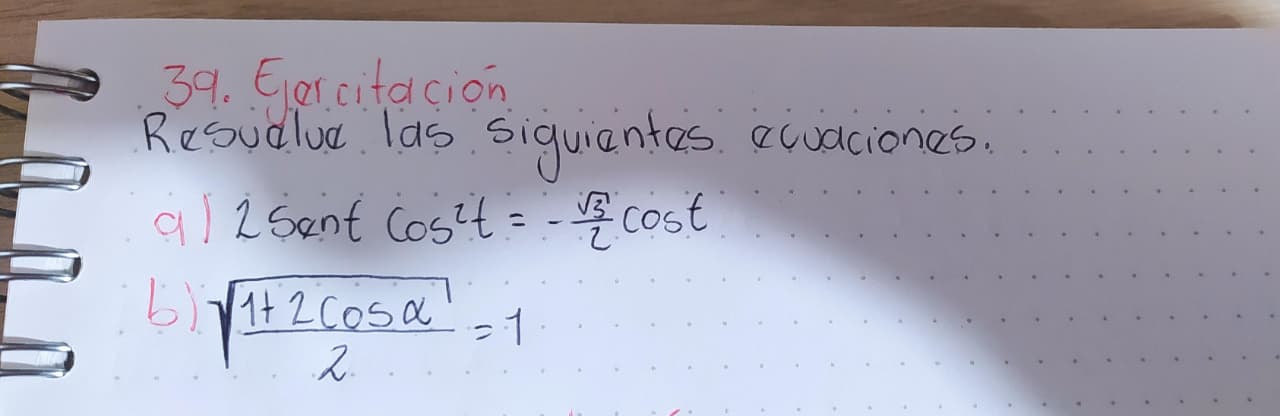 39. Ejercitación
Resuelve las siguientes ecuaciones.
a) 2 Sent Cos²t = -√3/2 cost
b) √(1+2Cosα/2) = 1